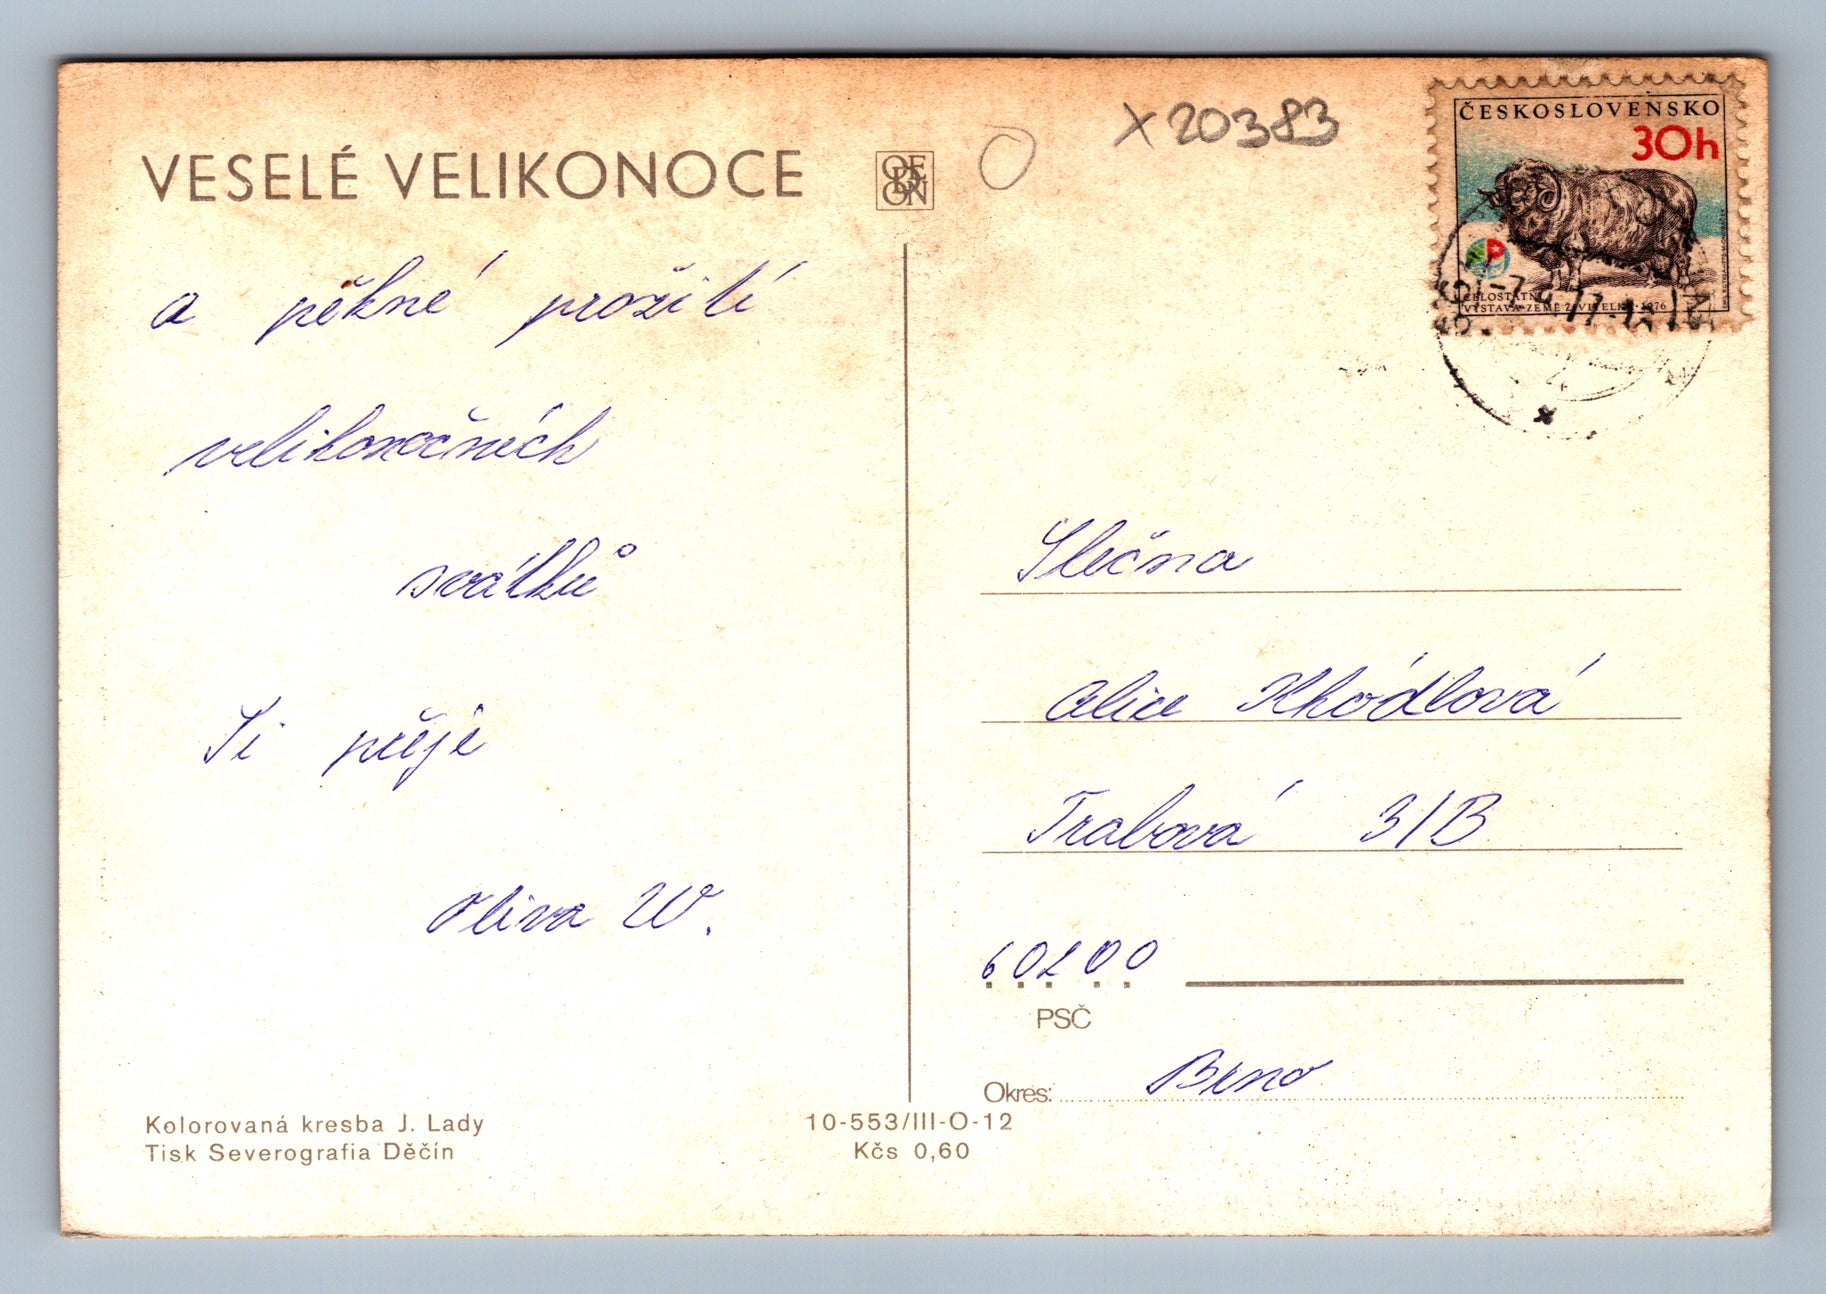 VESELÉ VELIKONOCE
ODEON
X20383
ČESKOSLOVENSKO
30h
CELOSTÁTNÍ
VÝSTAVA ZEMĚ ŽIVITELKA 1976
a pěkné prožití
velikonočních
svátků
Ti přeje
Oliva W.
Slečna
Alice Khódlová
Trabová 3/B
60200
PSČ
Okres: Brno
Kolorovaná kresba J. Lady
Tisk Severografia Děčín
10-553/III-O-12
Kčs 0,60